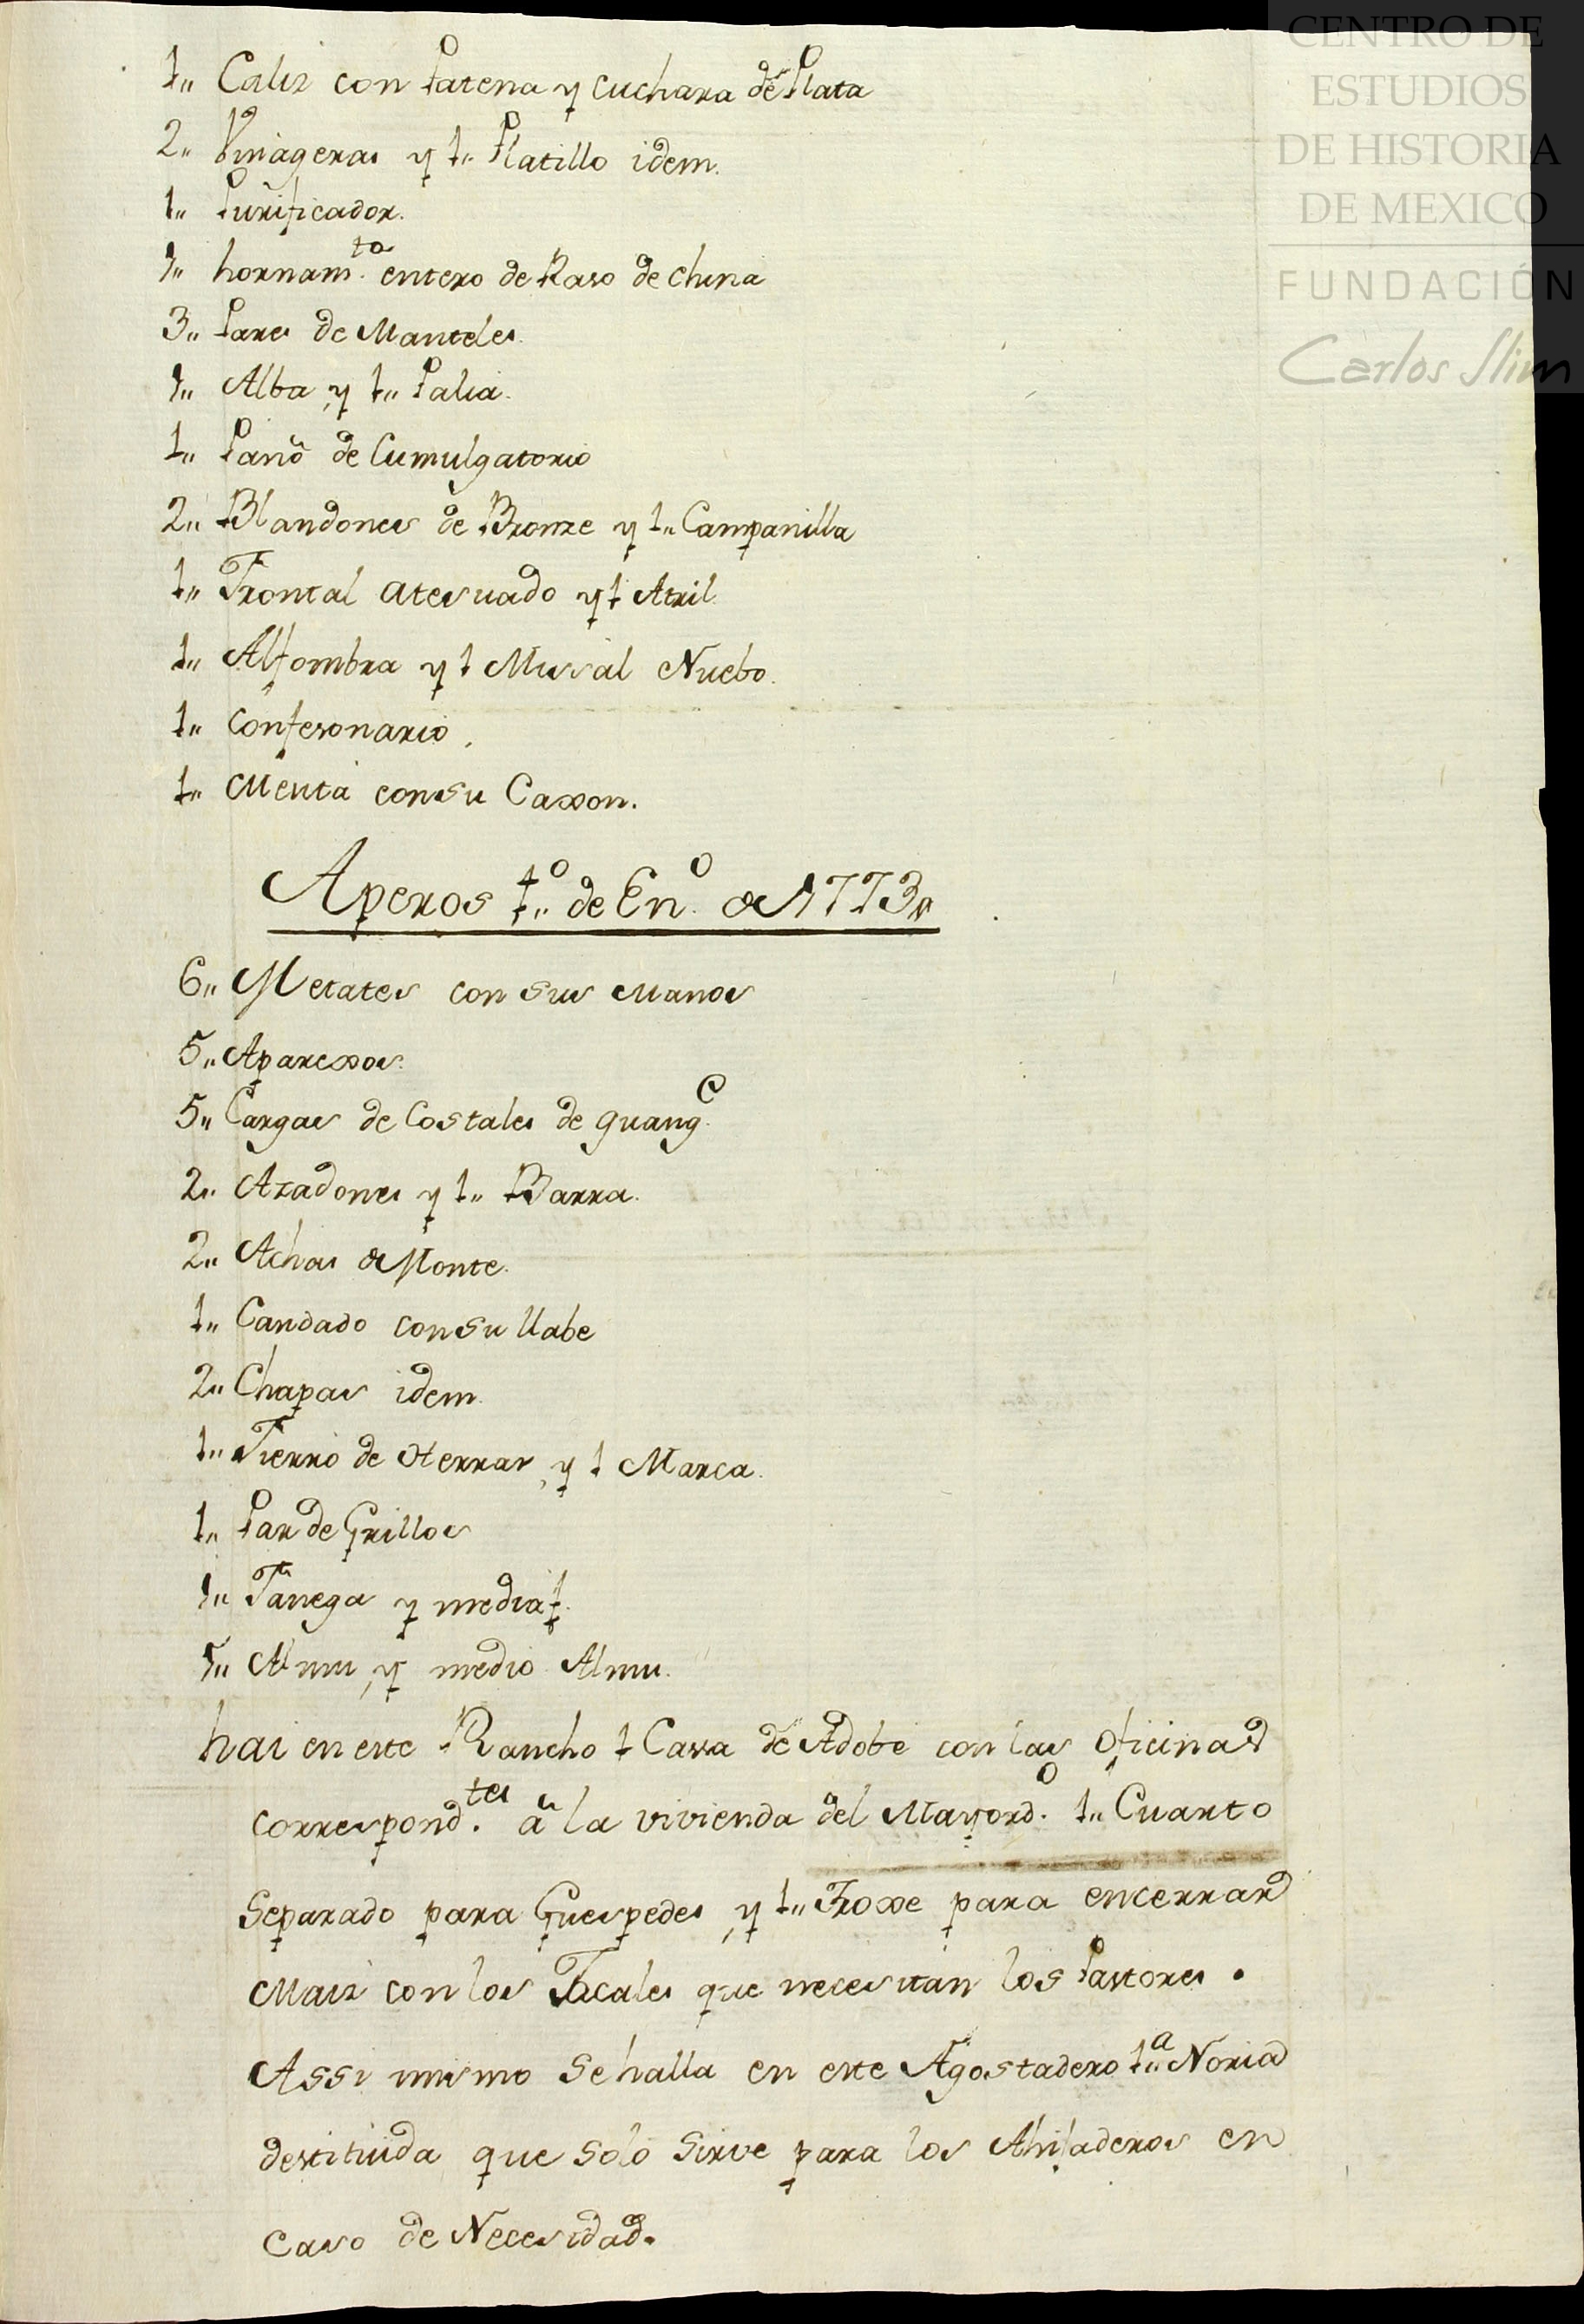 1,, Caliz con Patena y cuchara de Plata
2,, Vinageras y 1,, Platillo idem.
1,, Purificador.
1,, hornam.to entero de Raso de china
3,, Pares de Manteles.
1,, Alba, y 1,, Palia.
1,, Paño de Cumulgatorio
2,, Blandones de Bronze y 1,, Campanilla
1,, Frontal atesuado y 1 Atril.
1,, Alfombra y 1 Missal Nuebo.
1,, Confesonario.
1,, Mesita con su Caxon.
Aperos 1.o de En.o de 1773,,
6,, Metates con sus Manos
5,, Aparexos.
5,, Cargas de Costales de guang.e
2,, Azadones y 1,, Barra.
2,, Achas de Monte.
1,, Candado con su llabe
2,, Chapas idem.
1,, Fierro de Herrar, y 1 Marca.
1,, Par de Grillos
1,, Fanega y media 1.
1,, Almu, y medio Almu.
hai en este Rancho 1 Cassa de Adobe con las Oficinas
correspond.tes â la vivienda del Mayord.o 1,, Cuarto
Separado para Guespedes, y 1,, Troxe para encerrar
Maiz con los Jacales que necesitan los Pastores.
Assi mismo se halla en este Agostadero 1,,a Noria
destituida que solo sirve para los Ahijaderos en
caso de Necesidad.
CENTRO DE
ESTUDIOS
DE HISTORIA
DE MEXICO
FUNDACIÓN
Carlos Slim